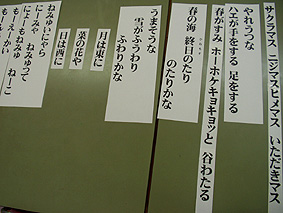 サクラマス ニジマスヒメマス いただきマス
やれうつな
ハエが手をする 足をする
春がすみ ホーホケキョキョッと 谷わたる
春の海 終日のたり
のたりかな
うまそうな
雪がふうわり
ふわりかな
月は東に
菜の花や
日は西に
ねみゅいにゃら
ねみゅって
もーえーかい